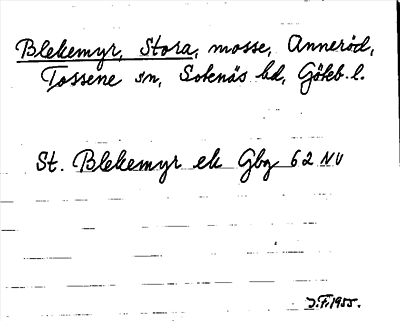 Blekemyr, Stora, mosse, Anneröd,
Tossene sn, Sotenäs hd, Göteb. l.
St. Blekemyr ek Gbg 62 NV
J.F. 1955.